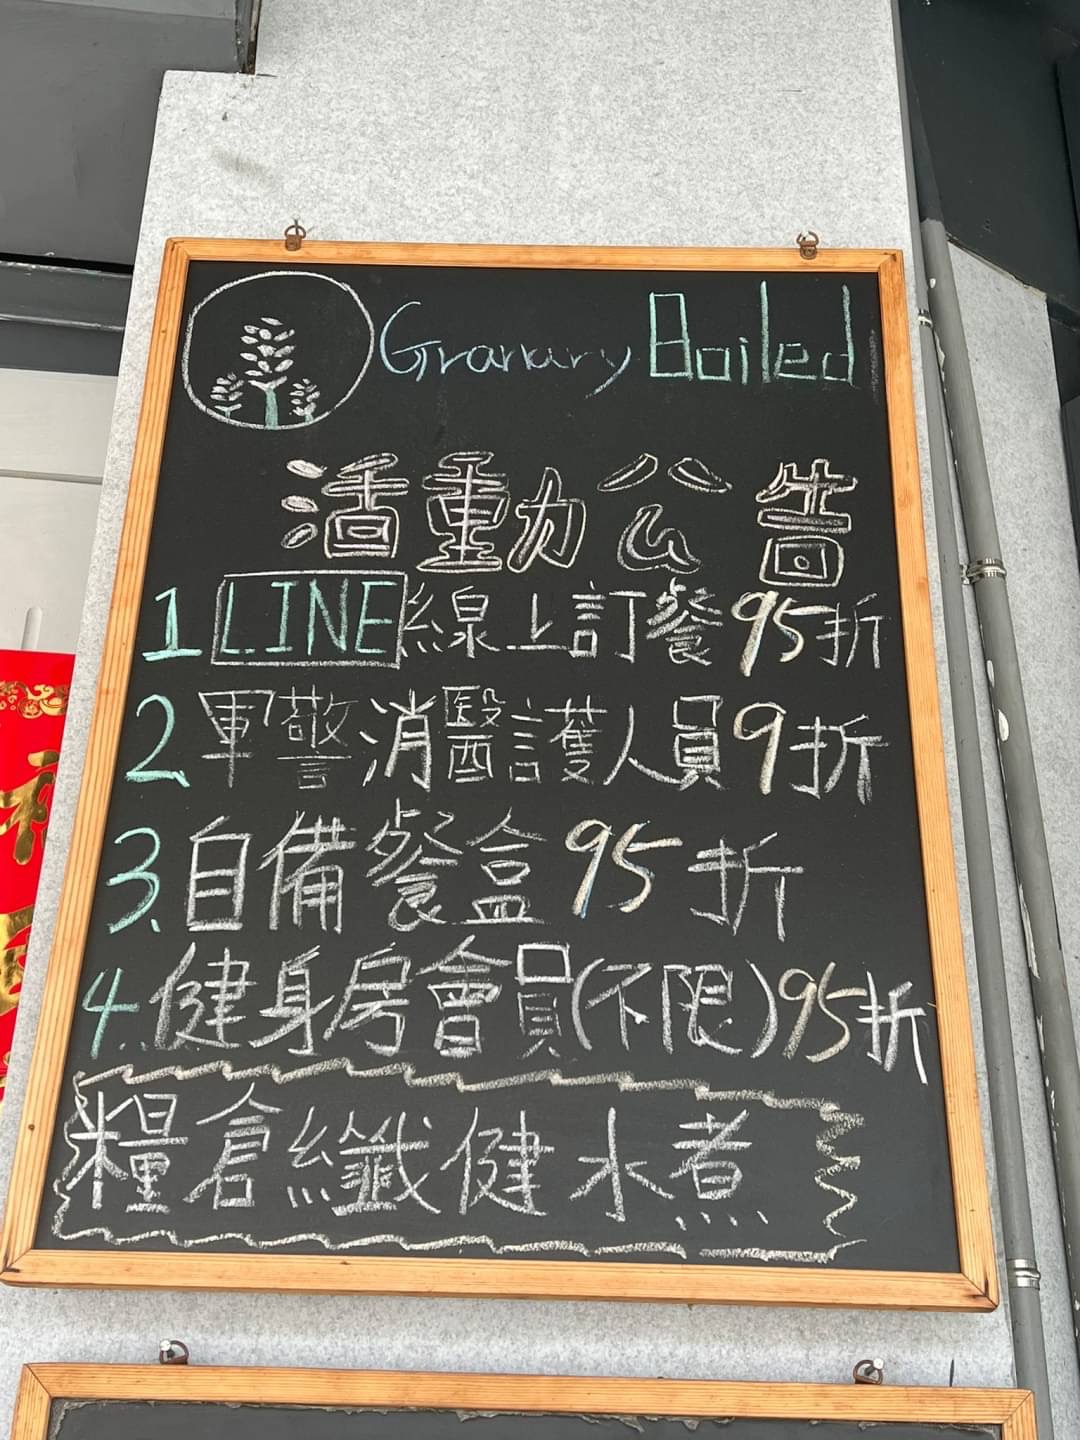 Granary Boiled
活動公告
1 LINE線上訂餐95折
2. 軍警消醫護人員9折
3. 自備餐盒95折
4. 健身房會員(不限)95折
糧倉纖健水煮